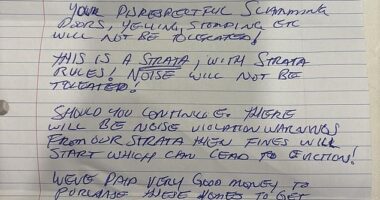 YOUR DISRESPECTFUL SLAMMING
DOORS, YELLING, STOMPING ETC
WILL NOT BE TOLERATED!
THIS IS A STRATA, WITH STRATA
RULES! NOISE WILL NOT BE
TOLERATED!
SHOULD YOU CONTINUE. THERE
WILL BE NOISE VIOLATION WARNINGS
FROM OUR STRATA THEN FINES WILL
START WHICH CAN LEAD TO EVICTION!
WE'VE PAID VERY GOOD MONEY TO
PURCHASE THESE HOMES TO GET